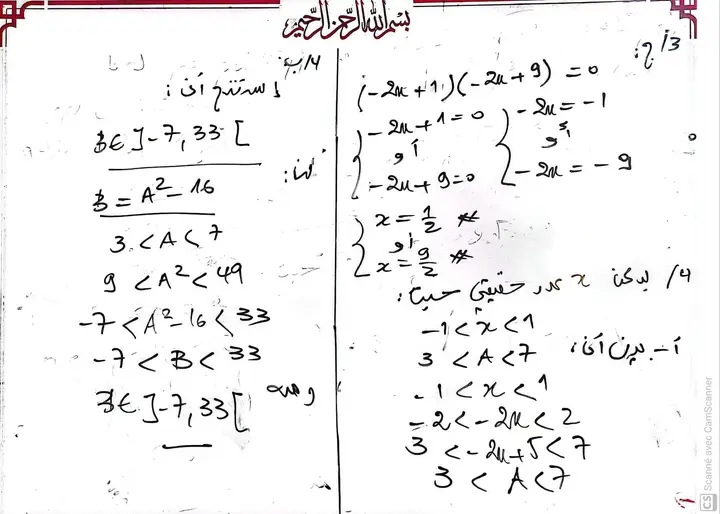 بسم الله الرحمن الرحيم
3/ج:
(-2x+1)(-2x+9) = 0
{ -2x+1=0 أو -2x+9=0
{ -2x=-1 أو -2x=-9
{ x=1/2 أو x=9/2
4/ ليكن x عدد حقيقي حيث:
-1<x<1
أ- بين أن، 3<A<7
-1<x<1
-2<-2x<2
3<-2x+5<7
3<A<7
4/ب
استنتج أن:
B∈]-7,33[
لدينا:
B = A²-16
3<A<7
9<A²<49
-7<A²-16<33
-7<B<33
ومنه B∈]-7,33[
CS Scanné avec CamScanner